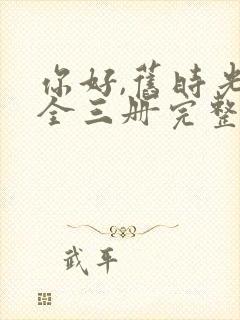 你好,旧时光
全三册完整
武平